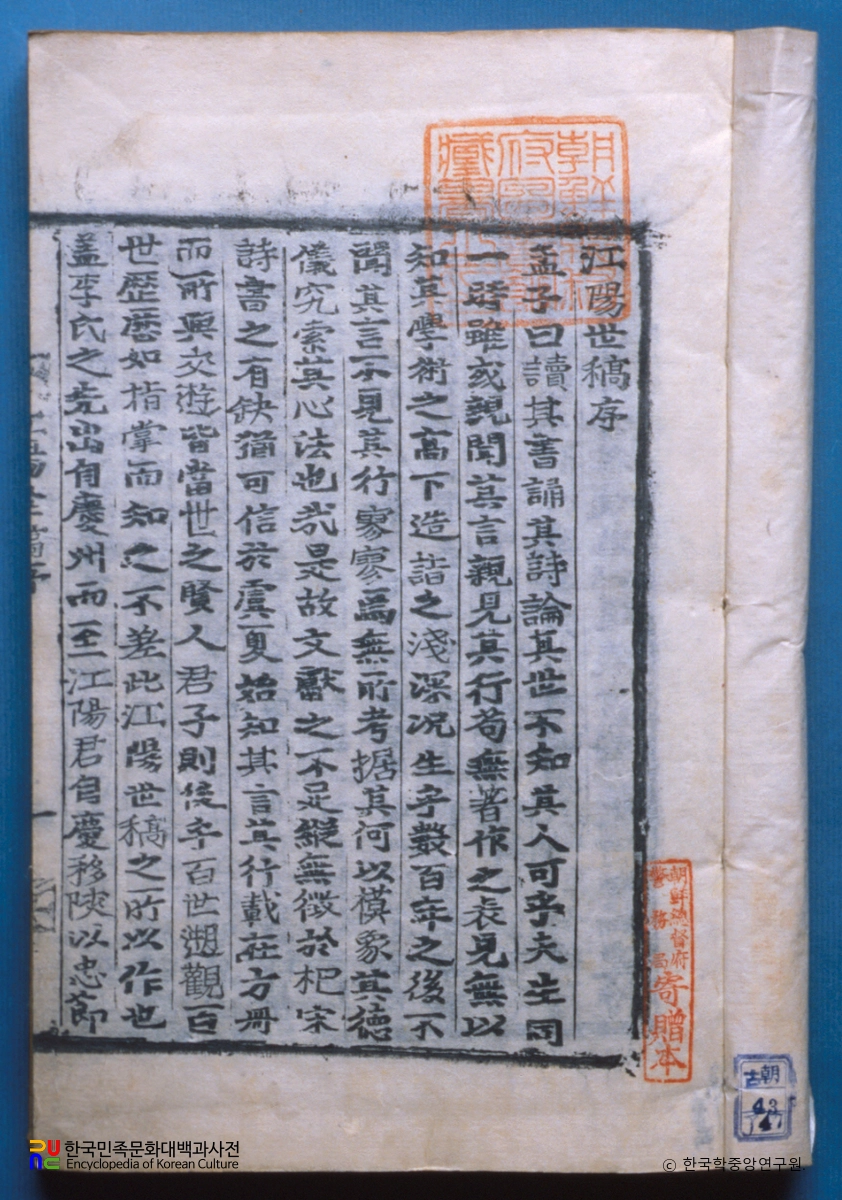 江陽世稿序
孟子曰讀其書誦其詩論其世不知其人可乎夫生同
一時雖或親聞其言親見其行苟無著作之表見無以
知其學術之高下造詣之淺深况生乎數百年之後不
聞其言不見其行寥寥焉無所考据其何以模象其德
儀究索其心法也哉是故文獻之不足縱無徵於杞宋
詩書之有缺猶可信於虞夏始知其言其行載在方冊
而所與交遊皆當世之賢人君子則後乎百世遡觀百
世歷歷如指掌而知之不差此江陽世稿之所以作也
盖李氏之先出自慶州而至江陽君自慶移陜以忠節
朝鮮總督府圖書館藏書之印
朝鮮總督府
警務局
寄贈本
朝
古
43
한국민족문화대백과사전
Encyclopedia of Korean Culture
ⓒ 한국학중앙연구원